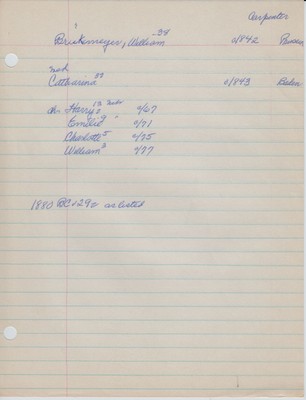 Carpenter
Brinkmeyer, William 38 c/1842 Prussia
md
Catharina 37 c/1843 Baden
ch Harry 13 c/67
Emilie 9 " c/71
Charlotte 5 c/75
William 3 c/77
1880 BC v29 as listed